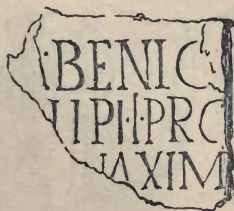 ·BENIC
IIPH·PRO
AXIM